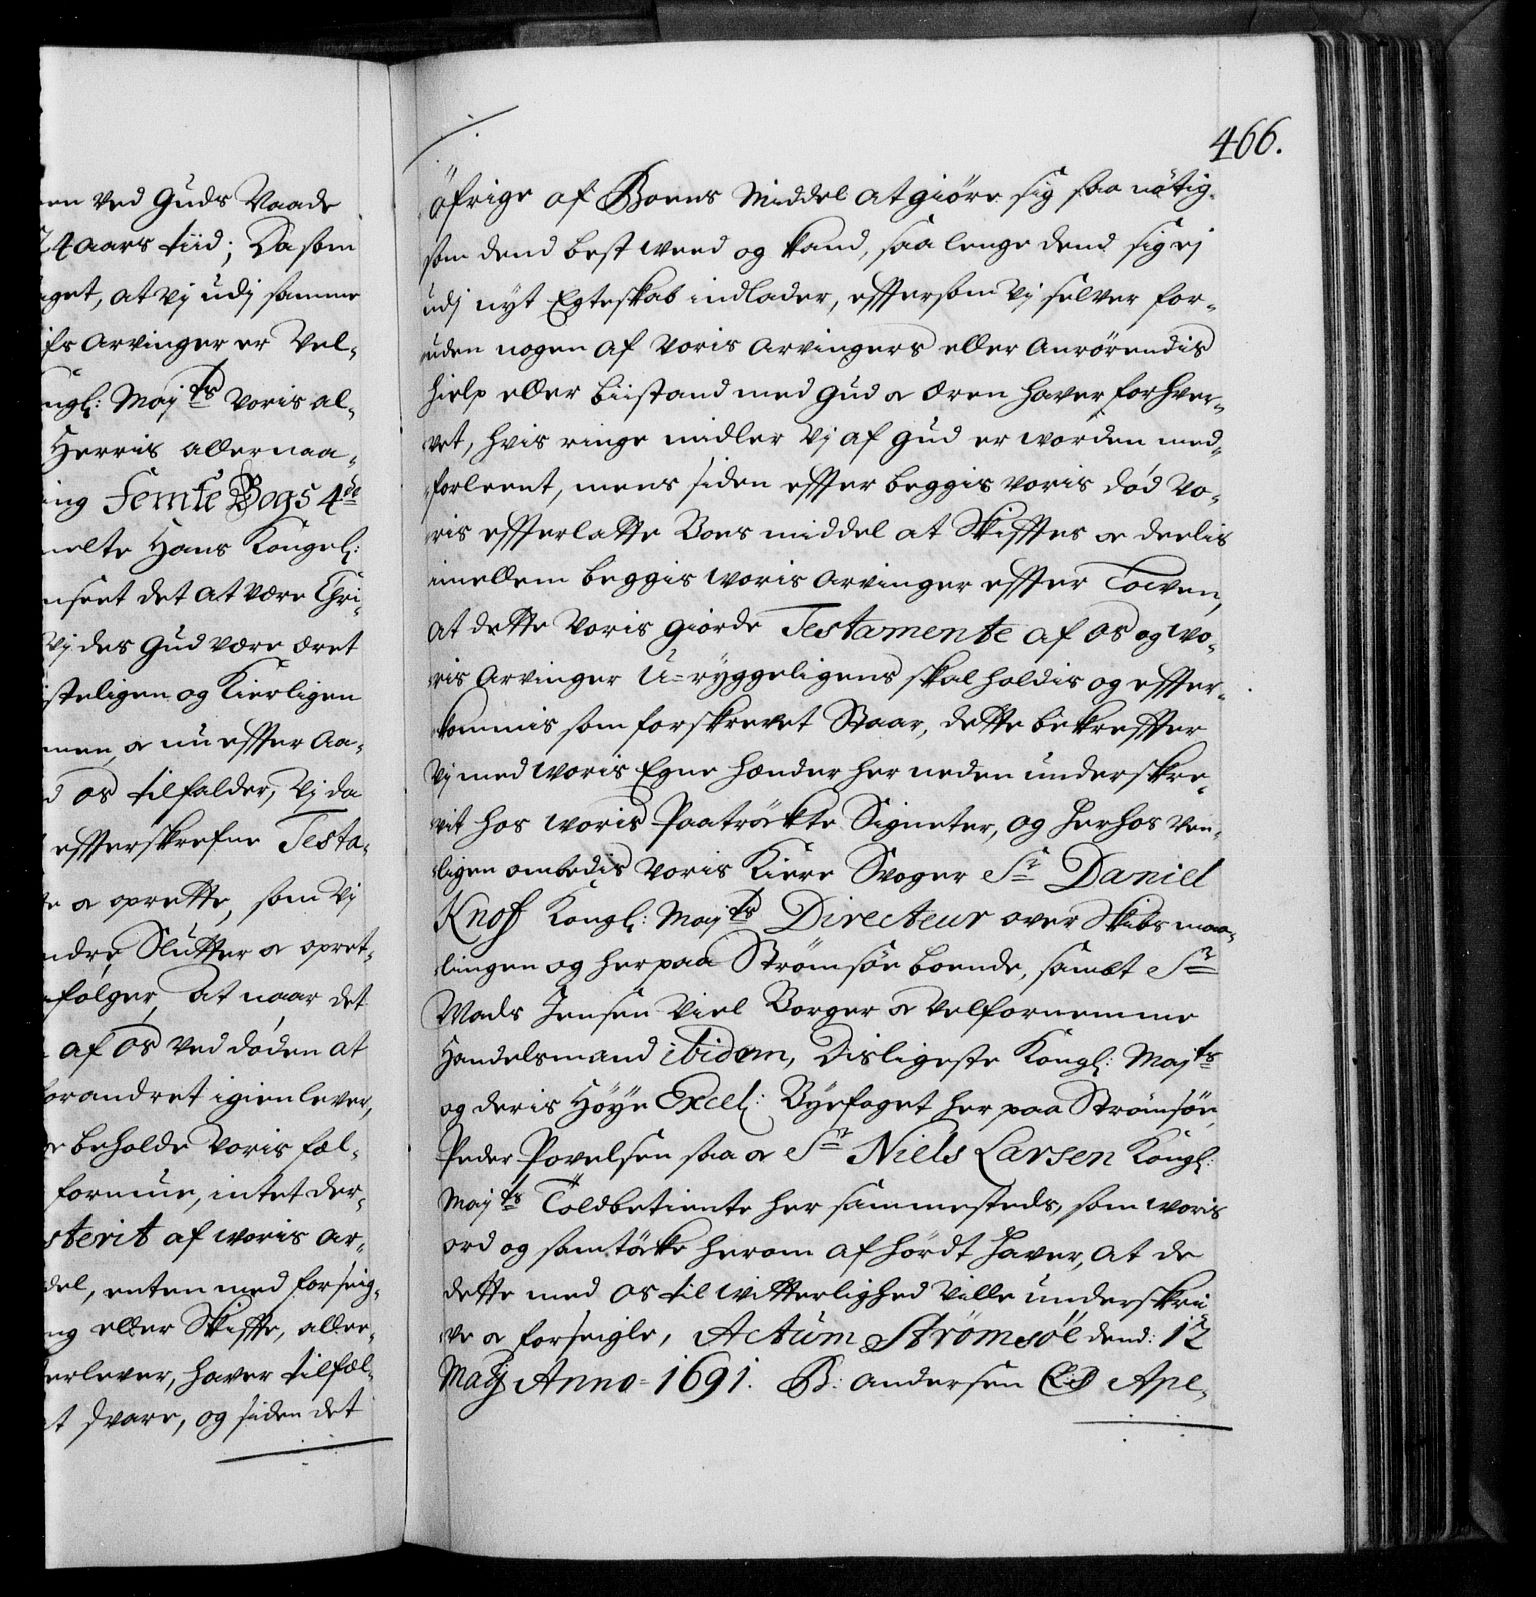 en ved Guds Naade
24 aars tiid; Da som
get, at vj udj samme
fs Arvinger er Vel-
ngl: Maj.ts voris al-
Herris allernaa-
ing Femte Bogs 4de
melte Hans Kongel:
nseet det at være Chri-
vj des Gud være æret
steligen og Kierligen
men, og nu effter Aa-
d os tilfalder, Vj da
effterskrefne Testa-
e og oprette, som Vj
ndre Slutter og opret-
følger, at naar det
af os ved døden at
orandret igienlever,
beholde Voris fæl-
formue, intet der-
sterit af woris Ar-
del, enten med forseig-
ng eller Skiffte, aller-
erlever, haver tilfæl-
t svare, og siden det
466.
öfrige af Boens Middel at giöre sig saa nötig-
som dend best weed og kand, saa lenge dend sig ej
udj nyt Egteskab indlader, efftersom Vj selver for-
uden nogen af Voris Arvingers eller Anrörendis
hielp eller biistand med Gud og Æren haver forhver-
vet, hvis ringe midler Vj af Gud er worden med-
forleent, mens siden effter beggis voris död Vo-
ris effterlatte Boes middel at Skifftes og deelis
imellem beggis woris Arvinger effter Lowen,
at dette Voris giorde Testamente af os og wo-
ris Arvinger U-ryggeligens skal holdis og effter-
kommis som forskrevet Staar, dette bekreffter
Vj med woris Egne hænder her neden underskre-
vit hos woris Paatröckte Signeter, og herhos ven-
ligen ombedis voris Kiere Svoger Sr Daniel
Knoff Kongl: Maj.ts Directeur over Skibs maa-
lingen og herpaa Strømsöe boende, sambt Sr
Mads Jensen Viel Borger og Velfornemme
Handelsmand ibidem, Disligeste Kongl: Maj.ts
og deris Höye Excel: Byefoget her paa Strömsöe,
Peder Povelsen saa og Sr Niels Larsen Kongl:
Maj.ts Toldbetiente her sammesteds, som woris
ord og samtöcke herom afhördt haver, at de
dette med os til Witterlighed Ville underskri-
ve og forseigle, Actum Strømsöe dend: 12
Maij Anno 1691. B: Andersen Apl-